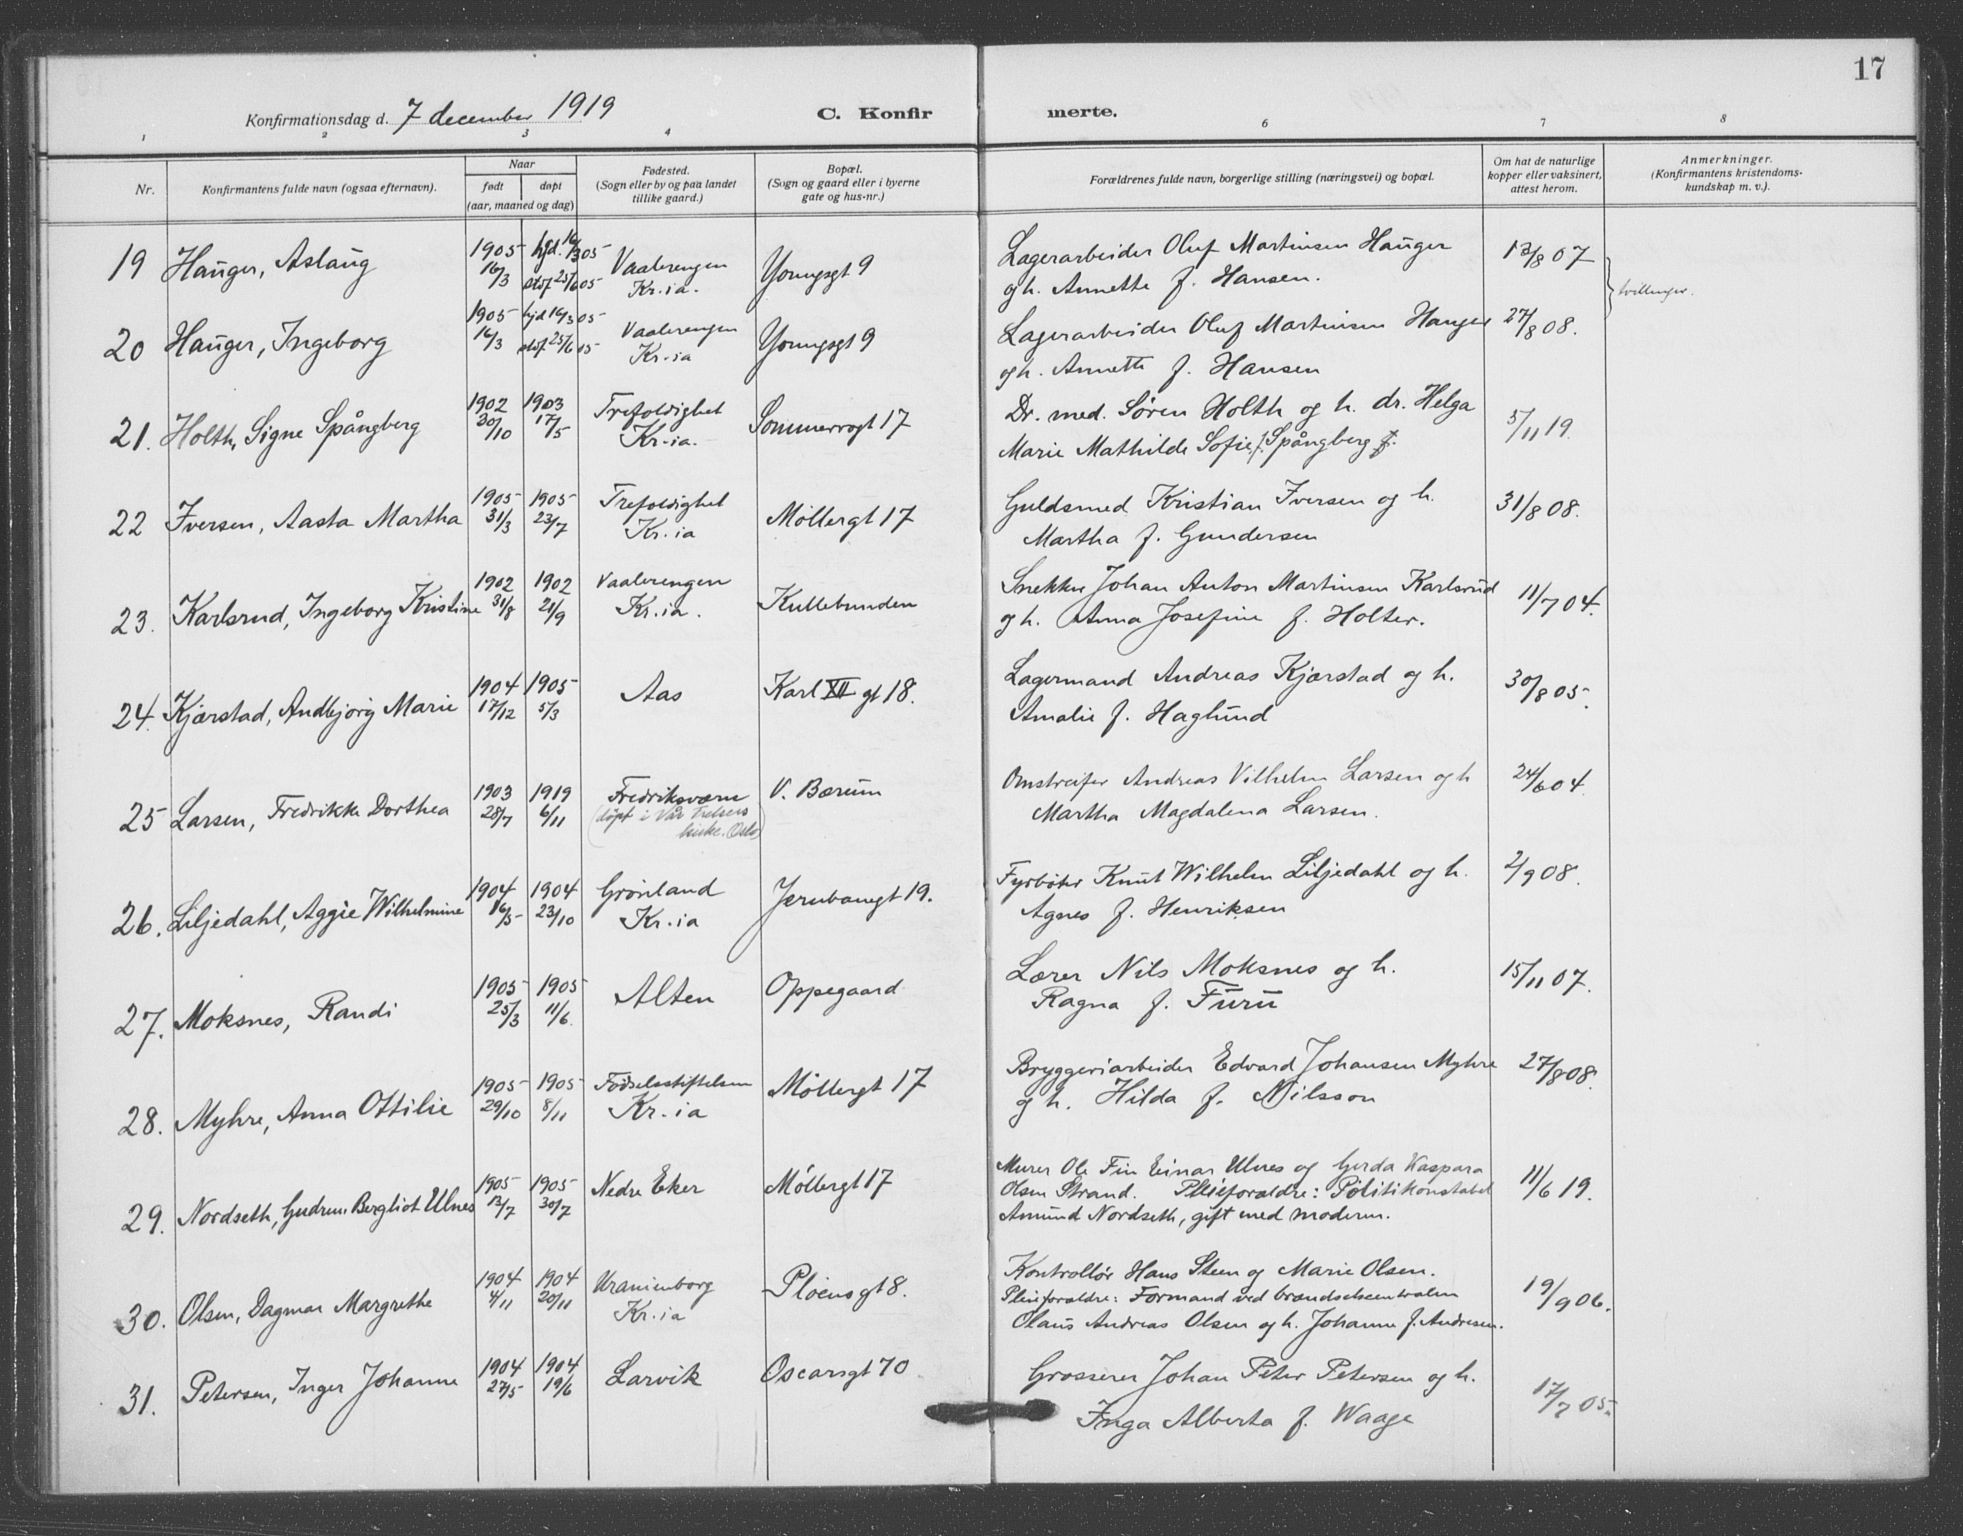 17
Konfirmationsdag d. 7 december 1919 C. Konfirmerte.
1 2 3 4 6 7 8
Nr. Konfirmantens fulde navn (ogsaa efternavn). Naar født døpt (aar, maaned og dag) Fødested. (Sogn eller by og paa landet tillike gaard.) Bopæl. (Sogn og gaard eller i byerne gate og hus-nr.) Forældrenes fulde navn, borgerlige stilling (næringsvei) og bopæl. Om hat de naturlige kopper eller vaksinert, attest herom. Anmerkninger. (Konfirmantens kristendoms-kundskap m. v.).
19 Hauger, Aslaug 1905 16/3 hjd. 16/3 05 stdf 25/6 05 Vaalerengen Kr.ia. Youngsgt 9 Lagerarbeider Oluf Martinsen Hauger
og h. Annette f. Hansen. 13/8 07 tvillinger.
20 Hauger, Ingeborg 1905 16/3 hjd 16/3 05 stdf 25/6 05 Vaalerengen Kr.ia Youngsgt 9 Lagerarbeider Oluf Martinsen Hauger
og h. Annette f. Hansen 27/8 08.
21. Holth, Signe Spångberg 1902 30/10 1903 17/5 Trefoldighet Kr.ia. Sommerrogt 17 Dr. med. Søren Holth og h. dr. Helga
Marie Mathilde Sofie f. Spångberg f. 5/11 19.
22 Iversen, Aasta Martha 1905 31/3 1905 23/7 Trefoldighet Kr.ia Møllergt 17 Guldsmed Kristian Iversen og h.
Martha f. Gundersen 31/8 08.
23. Karlsrud, Ingeborg Kristine 1902 31/8 1902 21/9 Vaalerengen Kr.ia. Kullebunden Snekker Johan Anton Martinsen Karlsrud
og h. Anna Josefine f. Holter. 11/7 04.
24. Kjærstad, Andbjørg Marie 1904 17/12 1905 5/3 Aas Karl XII gt 18. Lagermand Andreas Kjærstad og h.
Amalie f. Haglund 30/8 05.
25 Larsen, Fredrikke Dorthea 1903 28/7 1919 6/11 Fredriksværn (døpt i Vår Frelsers kirke. Oslo) V. Bærum Omstreifer Andreas Vilhelm Larsen og h
Martha Magdalena Larsen. 24/6 04.
26. Liljedahl, Aggie Wilhelmine 1904 16/5 1904 23/10 Grønland Kr.ia Jernbangt 19. Fyrbøter Knut Wilhelm Liljedahl og h.
Agnes f. Henriksen 2/9 08.
27. Moksnes, Randi 1905 25/3 1905 11/6. Alten Oppegaard Lærer Nils Moksnes og h.
Ragna f. Furu 15/11 07.
28. Myhre, Anna Ottilie 1905 29/10 1905 8/11 Fødselsstiftelsen Kr.ia Møllergt 17 Bryggeriarbeider Edvard Johansen Myhre
og h. Hilda f. Nilsson 27/8 08.
29. Nordseth, Gudrun Bergliot Ulnes 1905 13/7 1905 30/7 Nedre Eker Møllergt 17 Murer Ole Fin Einar Ulnes og Gerda Kaspara
Olsen Strand. Pleieforældre: Politikonstabel
Amund Nordseth, gift med moderen. 11/6 19.
30. Olsen, Dagmar Margrethe 1904 4/11 1904 20/11 Uranienborg Kr.ia Pløensgt 8. Kontrollør Hans Steen og Marie Olsen.
Pleieforældre: Formand ved brændselscentralen
Olaus Andreas Olsen og h. Johanne f. Andresen. 19/9 06.
31. Petersen, Inger Johanne 1904 27/5 1904 19/6 Larvik Oscarsgt 70 Grosserer Johan Peter Petersen og h.
Inga Alberta f. Waage 17/7 05.